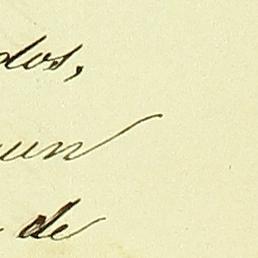 dos,
un
de